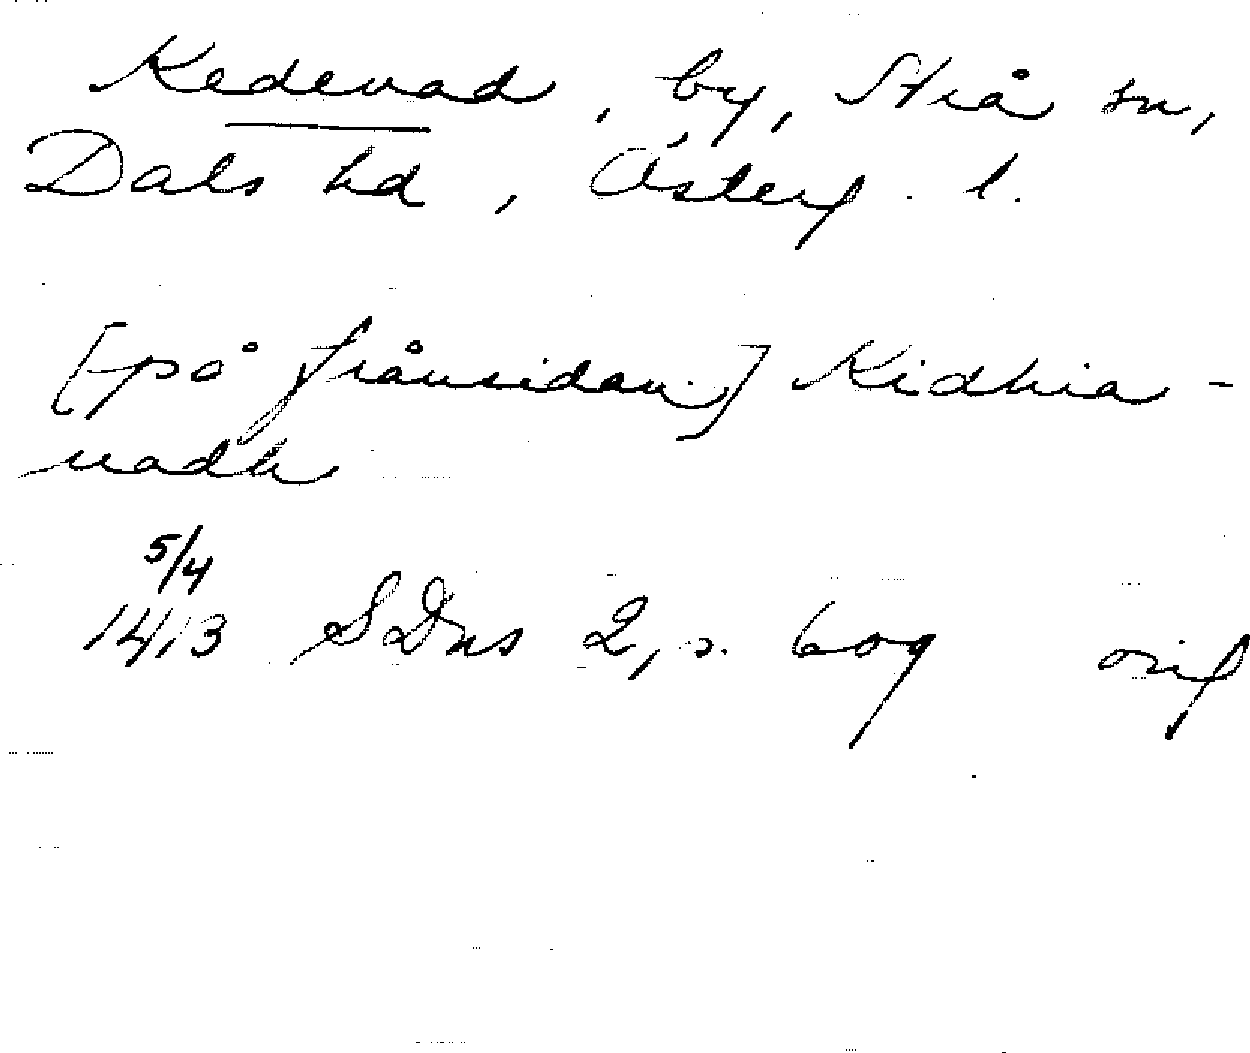 Kedevad, by, Strå sn,
Dals hd, Österg. l.
[på frånsidan] Kidhia-
uadh
5/4
1413 SDns 2, s. 609 orig